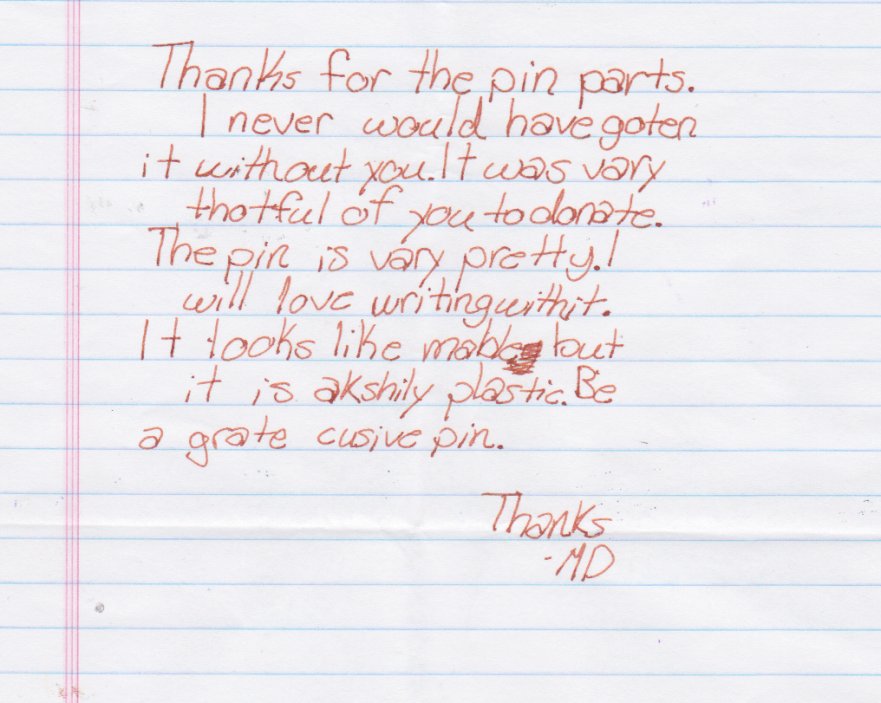 Thanks for the pin parts.
I never would have goten
it without you. It was vary
thotful of you to donate.
The pin is vary pretty. I
will love writing with it.
It looks like mable but
it is akshily plastic. Be
a grate cusive pin.
Thanks
-MD